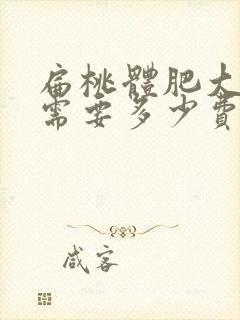 扁桃體肥大
需要多少費
咸客